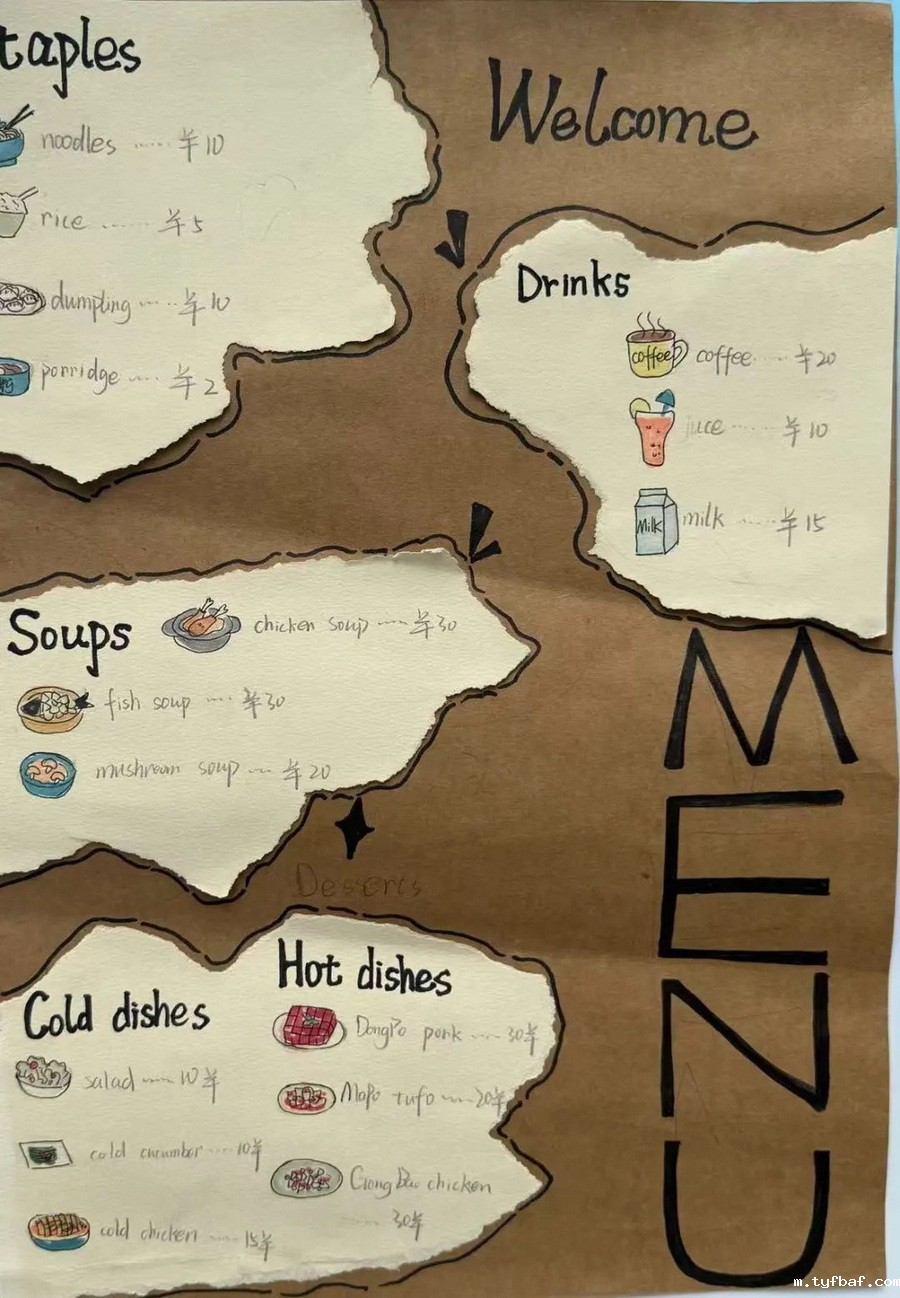 taples
noodles ...... ¥10
rice ....... ¥5
dumpling ...... ¥10
porridge ..... ¥2
Welcome
Drinks
coffee coffee ...... ¥20
juce ....... ¥10
Milk milk ...... ¥15
Soups
chicken soup ..... ¥30
fish soup ..... ¥30
mushroom soup ... ¥20
Desserts
Cold dishes
salad ...... 10¥
cold cucumber ..... 10¥
cold chicken ...... 15¥
Hot dishes
DongPo pork ..... 30¥
MaPo tufo ..... 20¥
GongBao chicken
...... 30¥
MENU
m.tyfbaf.com